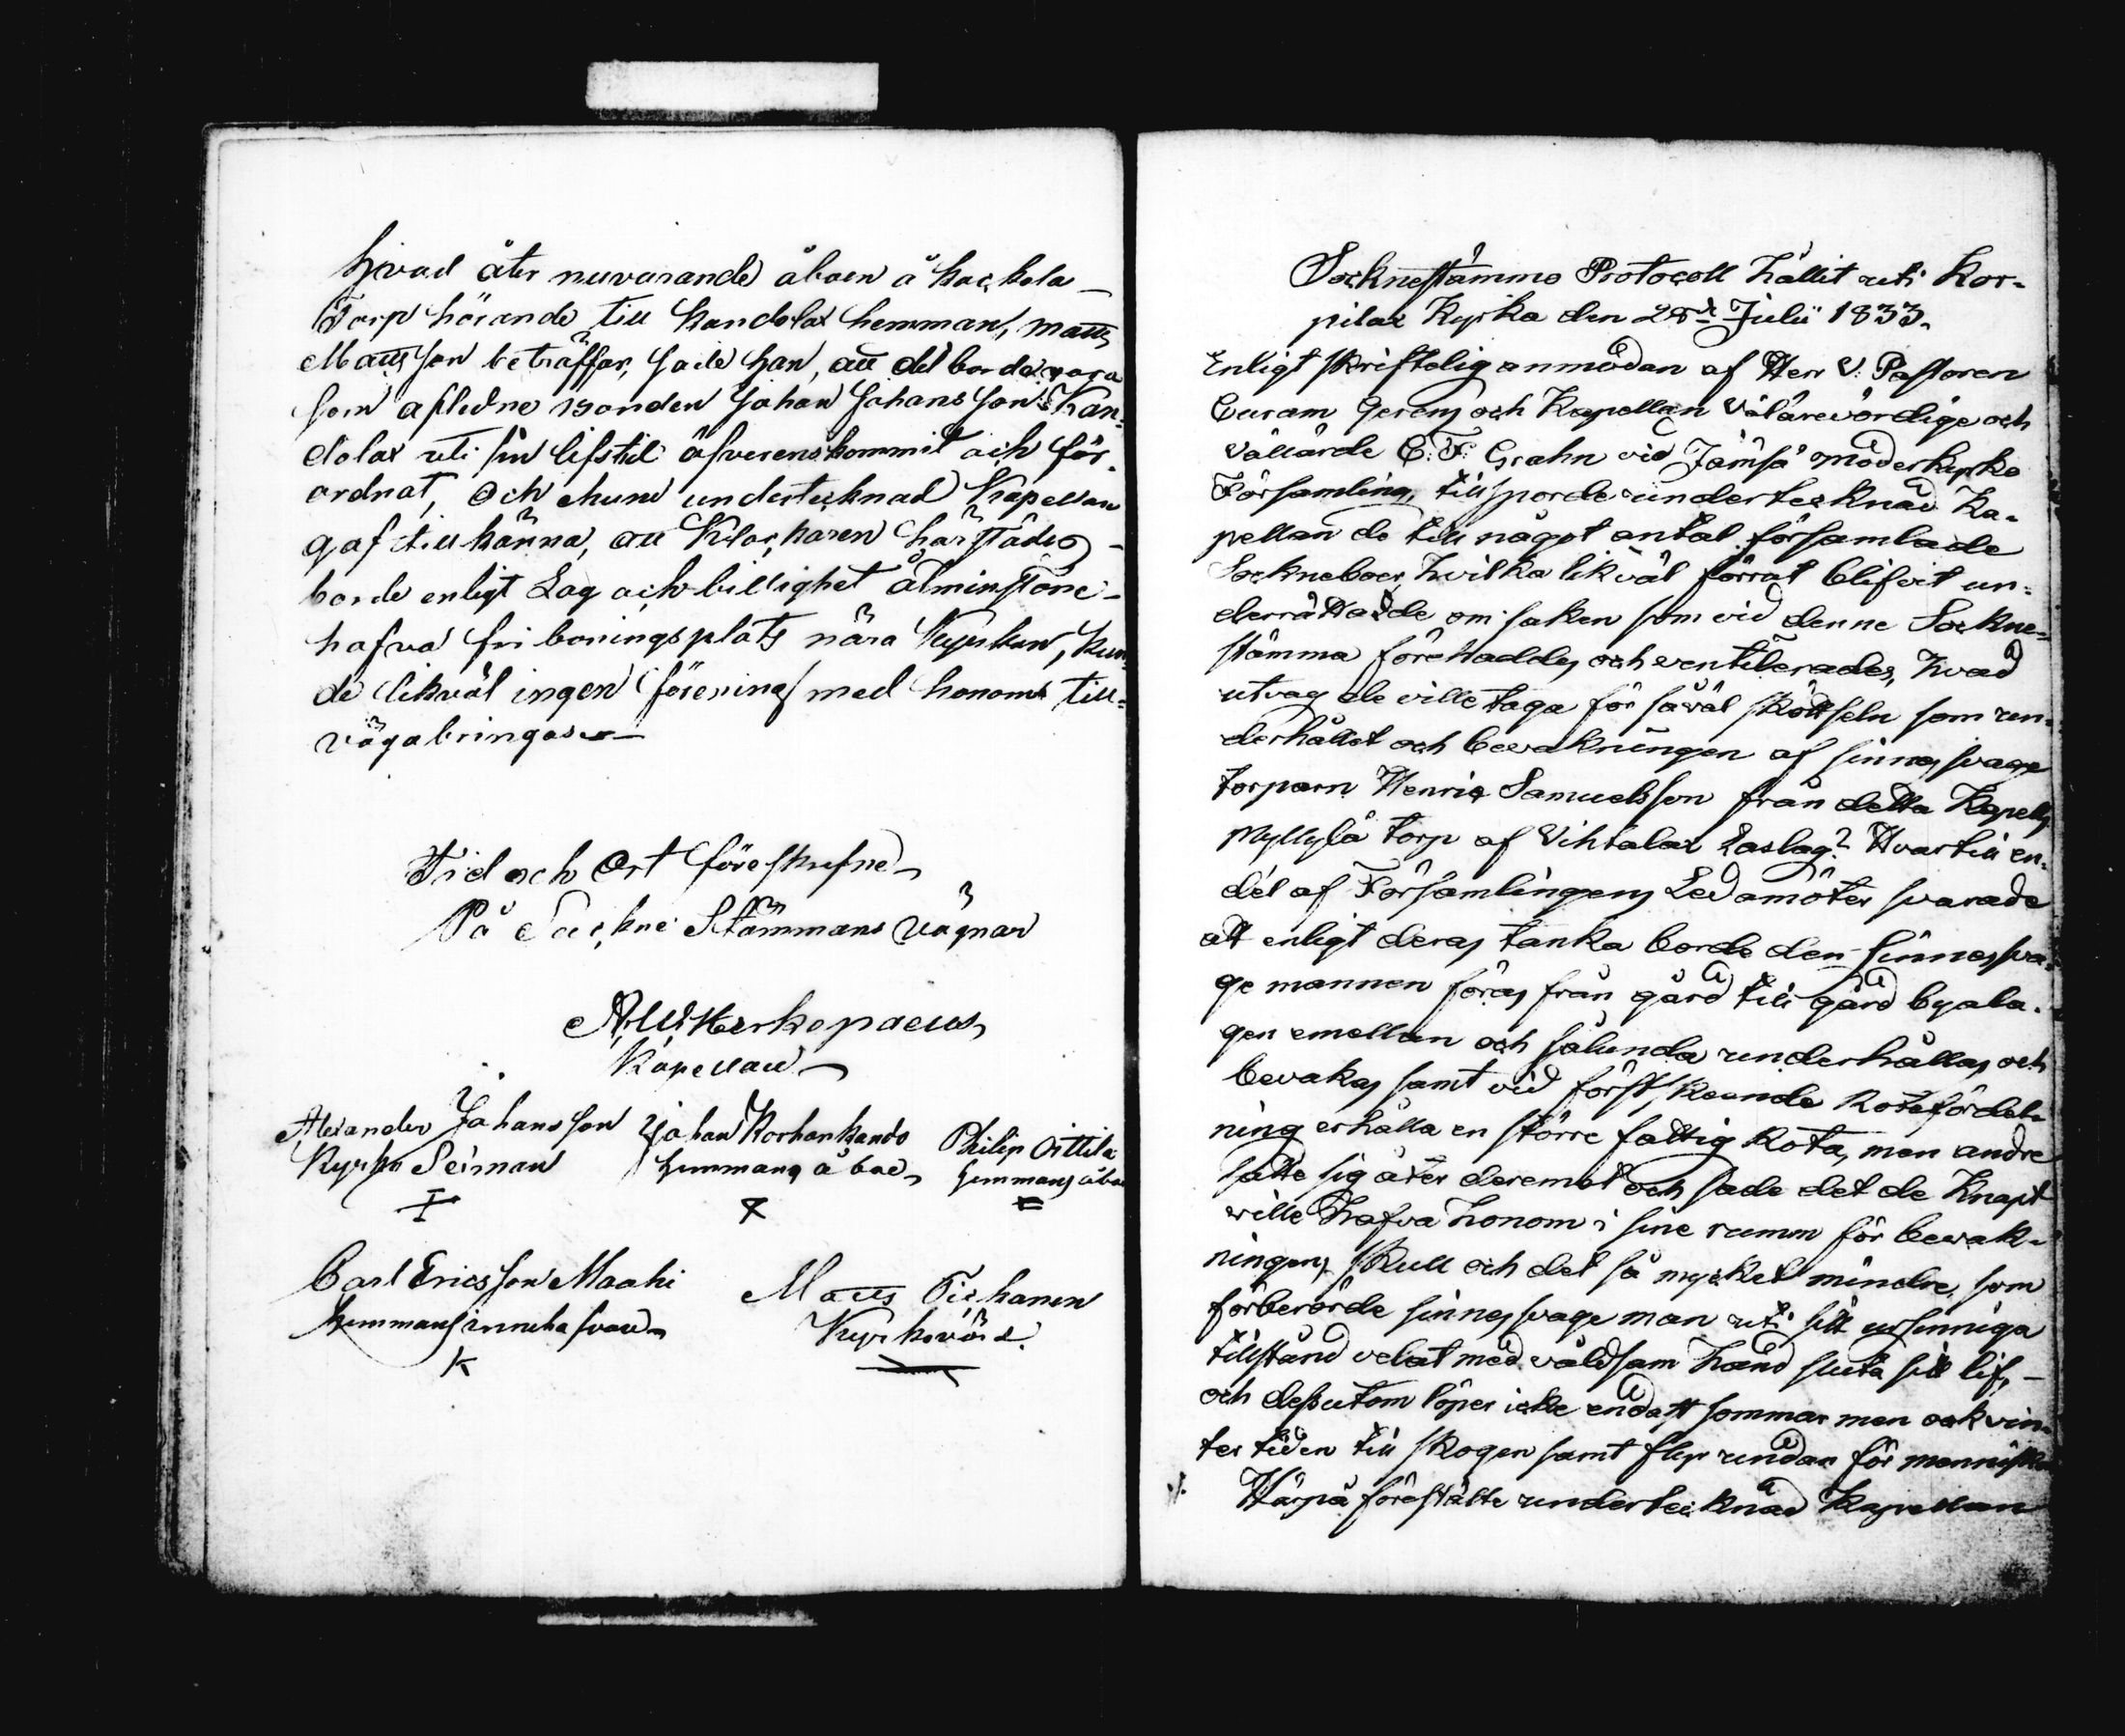 Hvad åter nuvarande åboen å Kackela
Torp hörande till Kandolax hemman, Matts
Mattsson beträffar, sade han, att det borde vara
som aflidne bonden Johan Johansson Kan-
dolax uti sin lifstid öfverenskommit och för-
ordnat, och ehuru undertecknad Kapellan
gaf till känna, att Klockaren härstädes
borde enligt Lag och billighet åtminstone
hafva fri boningsplats nära Kyrkan, kun-
de likväl ingen förening med honom till-
vägabringas.
Tid och Ort föreskrifne
På Sockne Stämmans vägnar
Kapellan
Alexander Johansson Johan Korhonkando Philip Oittila
Kyrko Seiman hemmans åboe, hemmans åboe
Carl Ericsson Maahi Matts Tiihonen
hemmansinnehafvare Kyrkovärd.
Socknestämmo Protocoll hållit uti Kor-
pilax Kyrka den 28de Julii 1833.
Enligt skriftelig anmodan af Herr V. Pastoren
Curam Gerens och Kapellan Välärevördige och
Vällärde C. F. Grahn vid Jämsä moderkyrko
Församling, tillsporde undertecknad Ka-
pellan de till något antal församlade
Sockneboer, hvilka likväl förrat blifvit un-
derrättade om saken som vid denne Sockne-
stämma förehaddes och ventilerades, hvad
utvag de ville taga för såväl skötseln som un-
derhållet och bevakningen af sinnessvage
torparn Henric Samuelsson från detta Kapells
Myllylä torp af Vihtalax Laslag? Hvartill en
del af Församlingens Ledamöter svarade
att enligt deras tanka borde den sinnessva-
ge mannen föras från gård till gård byala-
gen emellan och sålunda underhållas och
bevakas samt vid först skeende Rotefördel-
ning erhålla en större fattig Rota, men andre
satte sig åter deremot och sade det de knapt
ville hafva honom i sine rumm för bevak-
ningens skull och det så mycket mindre, som
förberörde sinnessvage man uti sitt ursinniga
tillstånd velat med våldsam hand sluta sitt lif,
och dessutom löper icke endast sommar men ock vin-
ter tiden till skogen samt flyr undan för menniskor
Härpå föreställte undertecknad Kapellan